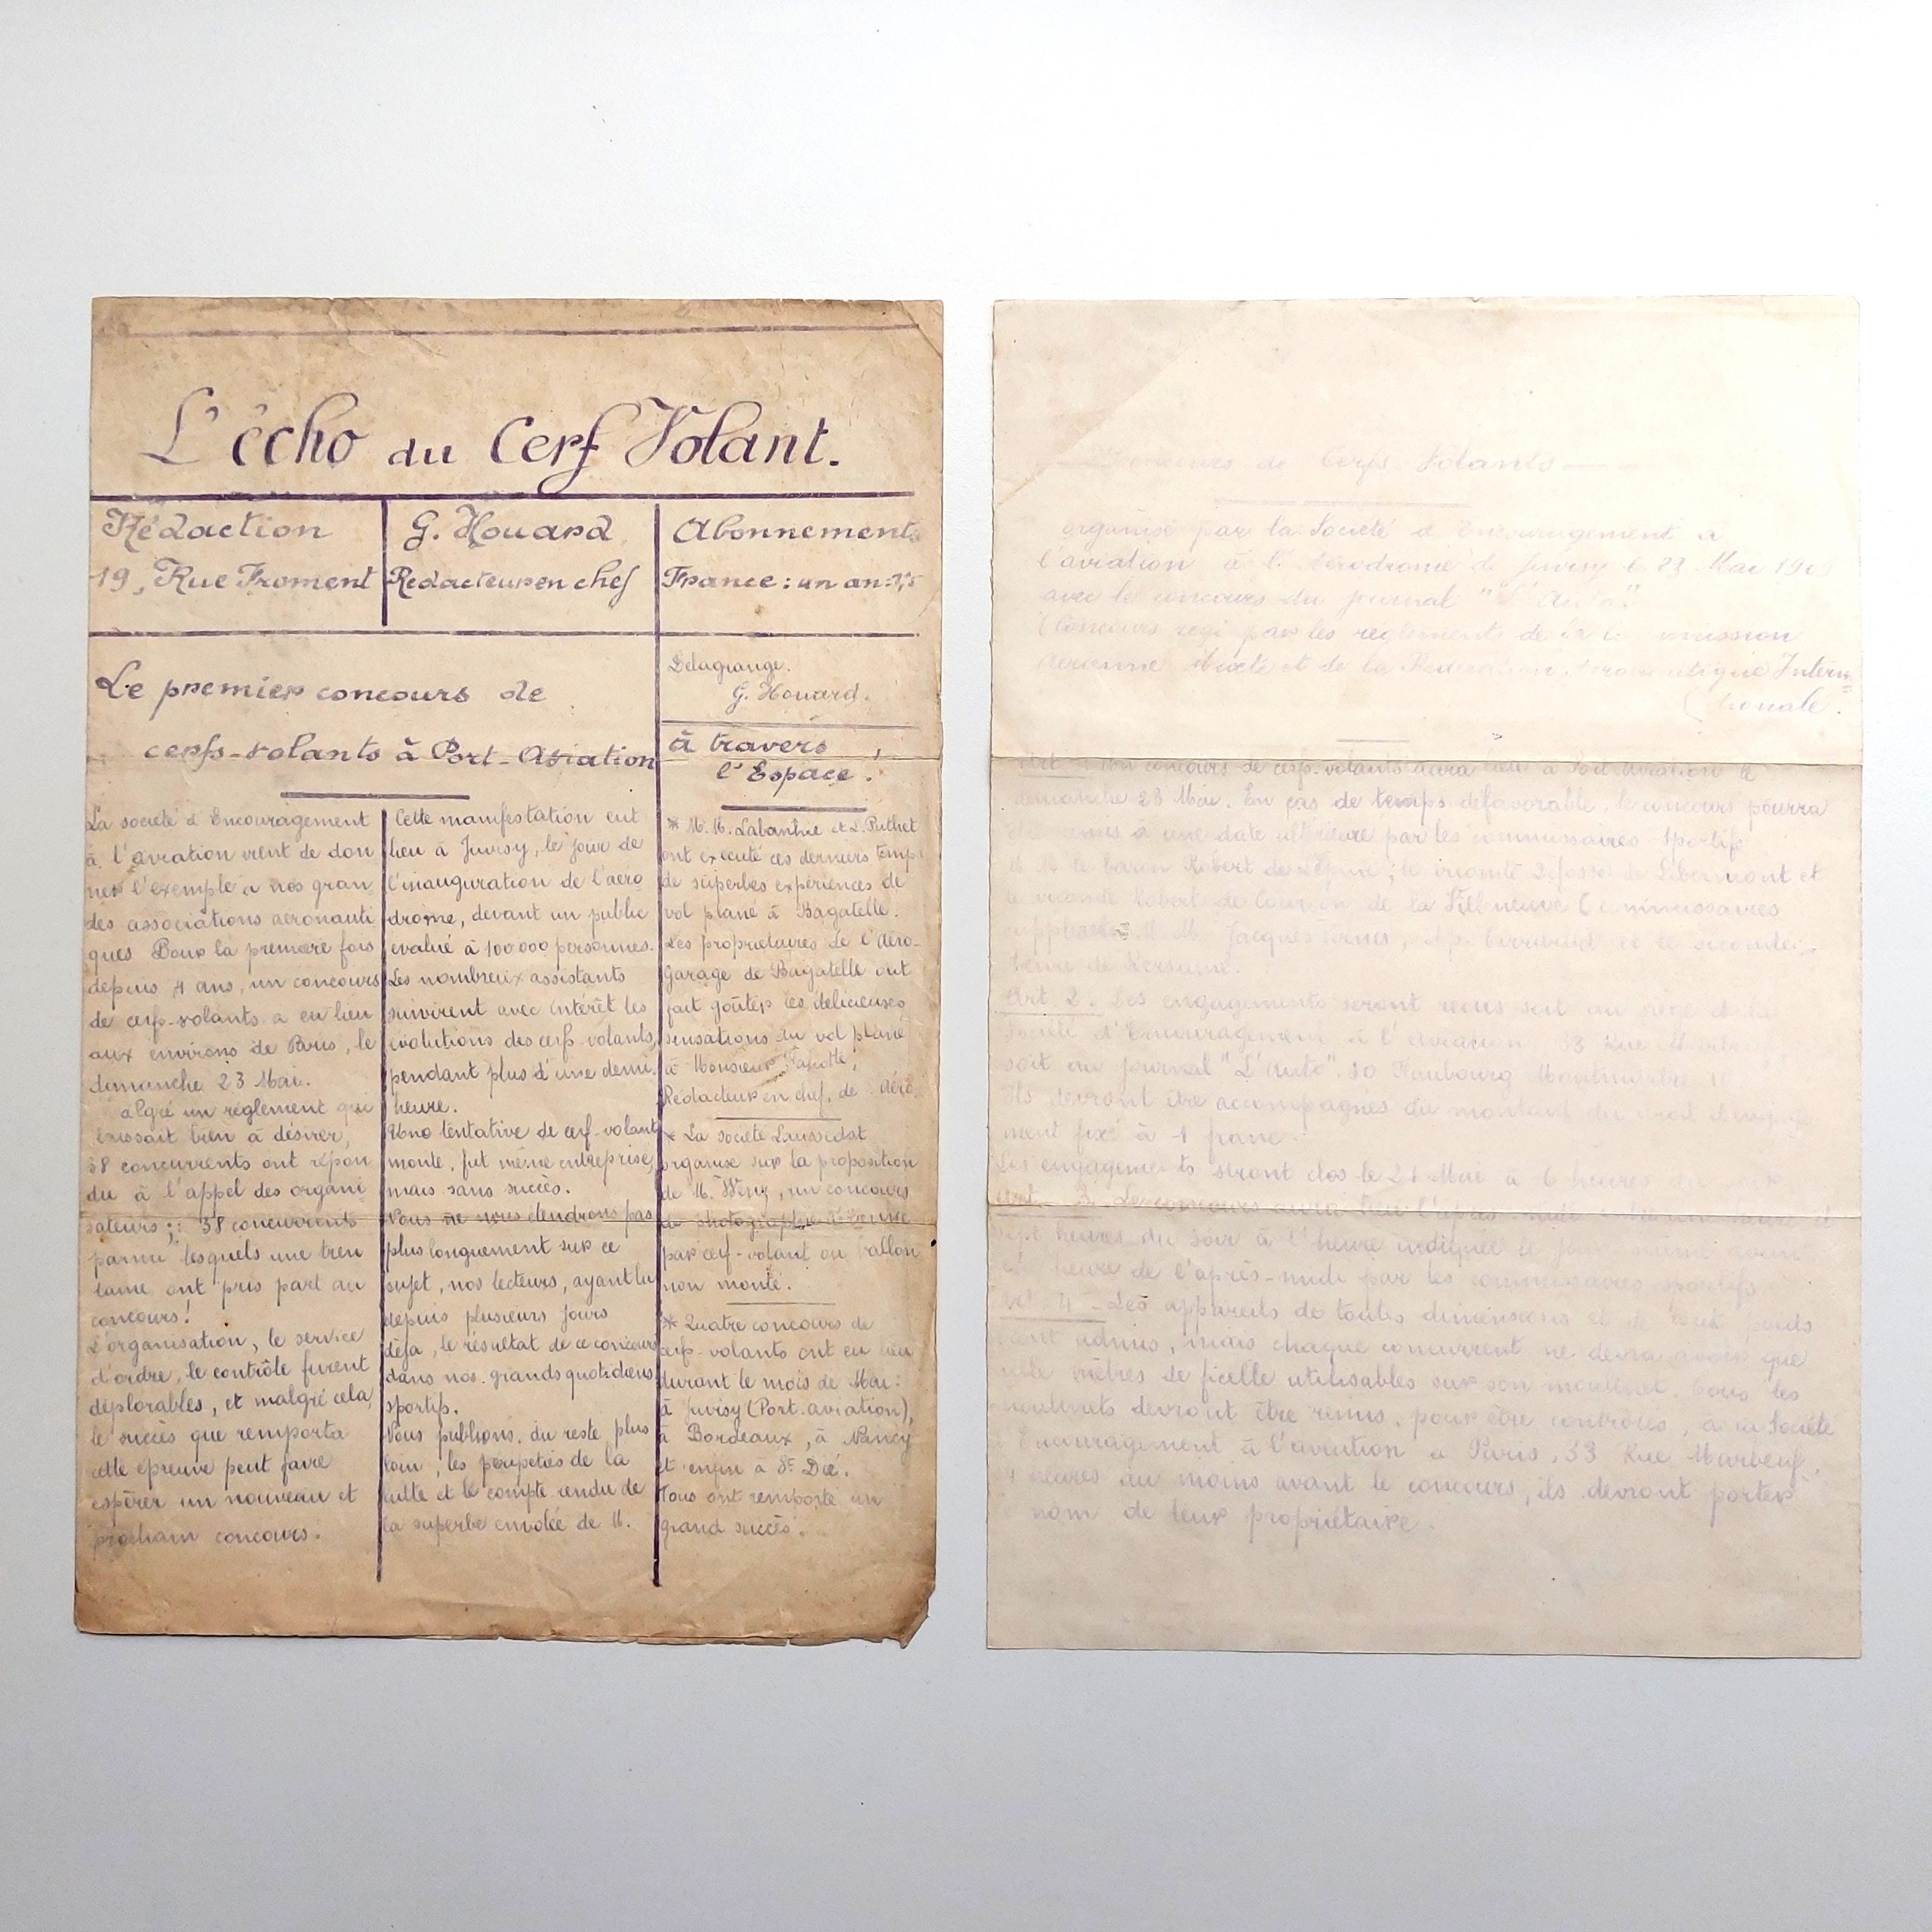 L'écho du Cerf Volant.
Rédaction
19, Rue Froment
G. Houard
Redacteur en chef
Abonnements
France: un an:
Le premier concours de
cerfs-volants à Port-Aviation
La société d'Encouragement
à l'aviation vient de don
ner l'exemple à nos gran
des associations aéronauti
ques Pour la première fois
depuis 4 ans, un concours
de cerfs-volants a eu lieu
aux environs de Paris, le
dimanche 23 Mai.
algré un règlement qui
laissait bien à désirer,
38 concurrents ont répon
du à l'appel des organi
sateurs;; 38 concurrents
parmi lesquels une tren
taine ont pris part au
concours!
L'organisation, le service
d'ordre, le contrôle furent
déplorables, et malgré cela,
le succès que remporta
cette épreuve peut faire
espérer un nouveau et
prochain concours.
Cette manifestation eut
lieu à Juvisy, le jour de
l'inauguration de l'aéro
drome, devant un public
évalué à 100000 personnes.
Les nombreux assistants
suivirent avec intérêt les
évolutions des cerfs-volants,
pendant plus d'une demi.
heure.
Une tentative de cerf-volant
monté, fut même entreprise,
mais sans succès.
Nous ne nous étendrons pas
plus longuement sur ce
sujet, nos lecteurs, ayant lu
depuis plusieurs jours
déja, le résultat de ce concours
dans nos grands quotidiens
sportifs.
Nous publions, du reste plus
loin, les péripéties de la
lutte et le compte rendu de
la superbe envolée de M.
Delagrange.
G. Houard.
à travers
l'Espace.
* M.M. et L. Puthet
ont exécuté ces derniers temps
de superbes expériences de
vol plané à Bagatelle.
Les propriétaires de l'Aéro-
garage de Bagatelle ont
fait goûter les délicieuses
sensations du vol plané
à Monsieur
Rédacteur en chef, de
* La société Laussedat
organise sur la proposition
de M. Wenz, un concours
de photographie aérienne
par cerf-volant ou ballon
non monté.
* Quatre concours de
cerfs-volants ont eu lieu
durant le mois de Mai:
à Juvisy (Port-aviation),
à Bordeaux, à Nancy
et enfin à St Dié.
Tous ont remporté un
grand succès.
de Cerfs Volants
organisé par la Société d'Encouragement à
l'aviation à l'Aérodrome de Juvisy le 23 Mai 190
avec le concours du journal "L'Auto".
(Concours régi par les règlements de la
aérienne Mixte et de la Fédération Aéronautique Intern
tionale.
concours de cerfs-volants aura lieu à Port-Aviation le
dimanche 23 Mai. En cas de temps défavorable, le concours pourra
remis à une date ultérieure par les commissaires Sportifs
M.M. le baron Robert de ; le vicomte de et
le vicomte Robert de de la Villeneuve Commissaires
M.M. Jacques et le vicomte
de
Art. 2. Les engagements seront reçus soit au siège de la
Société d'Encouragement à l'Aviation, 33 Rue
soit au journal "L'Auto". 10 Faubourg Montmartre
Ils devront être accompagnés du montant du droit d'engage
ment fixé à 1 franc.
Les engagements seront clos le 21 Mai à 6 heures du
Art. 3. Le concours aura lieu l'après midi
sept heures du soir à l'heure indiquée le
heure de l'après-midi par les commissaires sportifs
4 - Les appareils de toutes dimensions et de tous poids
sont admis, mais chaque concurrent ne devra avoir que
mètres de ficelle utilisables sur son moulinet. Tous les
moulinets devront être remis, pour être contrôlés, à la Société
d'Encouragement à l'aviation à Paris, 33 Rue Marbeuf,
heures au moins avant le concours, ils devront porter
nom de leur propriétaire.